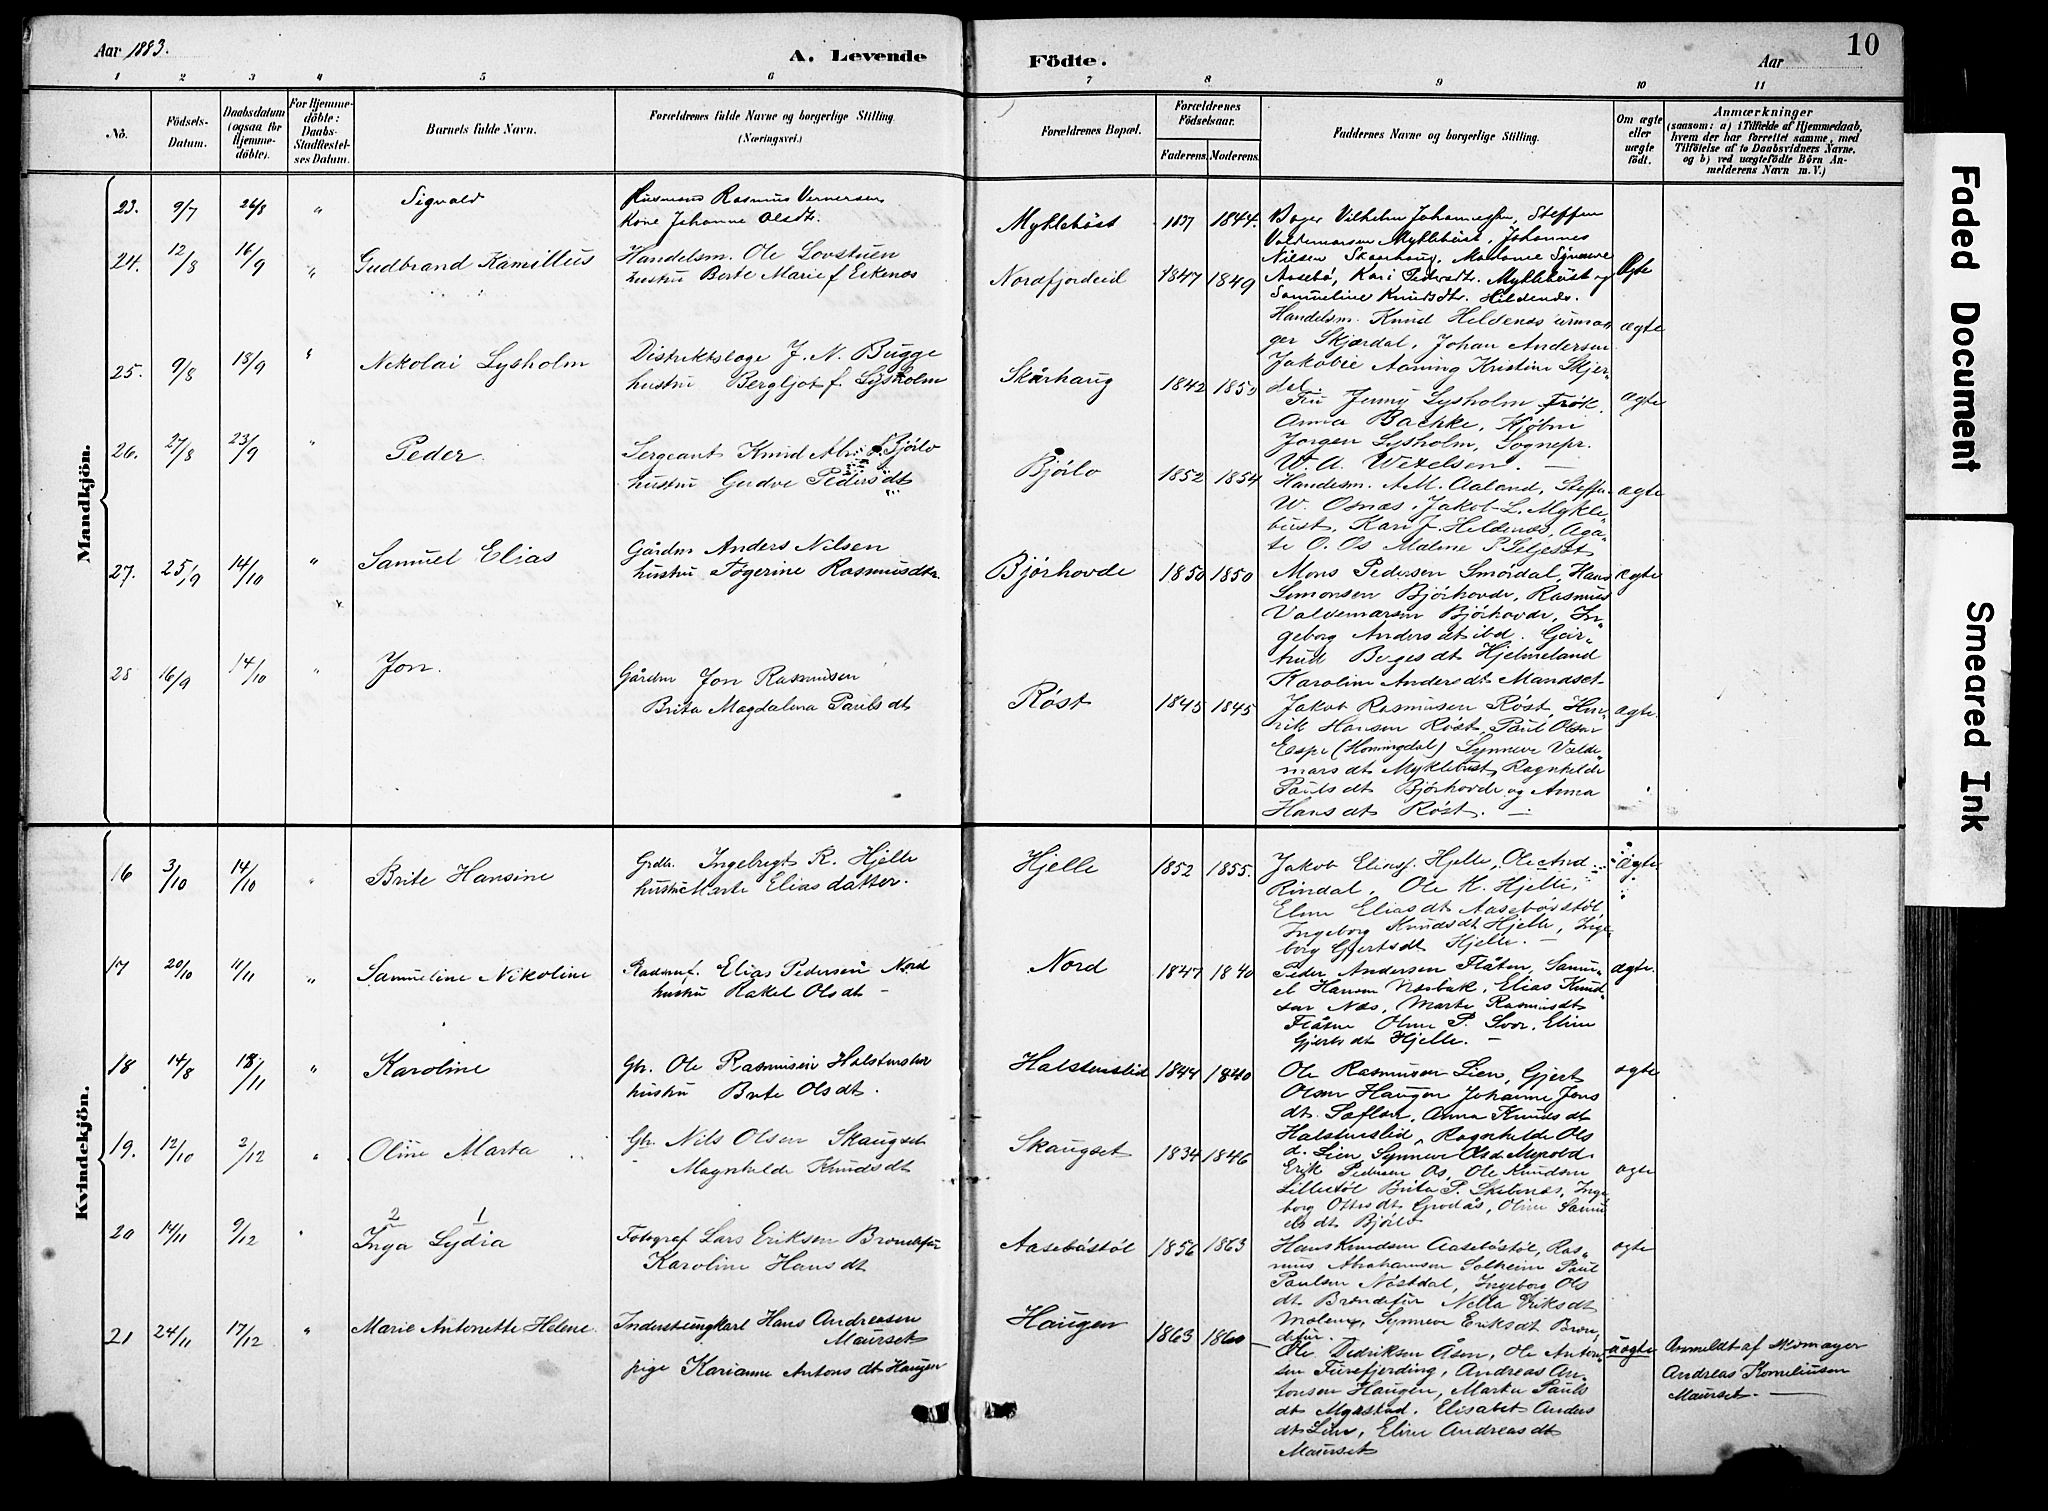 Aar 1883.
A. Levende Födte.
Aar
10
1 2 3 4 5 6 7 8 9 10 11
No.
Födsels-
Datum.
Daabsdatum
(ogsaa for
Hjemme-
döbte).
For Hjemme-
döbte:
Daabs-
Stadfæstel-
ses Datum.
Barnets fulde Navn.
Forældrenes fulde Navne og borgerlige Stilling.
(Næringsvei.)
Forældrenes Bopæl.
Forældrenes
Födselsaar.
Faderens. Moderens.
Faddernes Navne og borgerlige Stilling.
Om ægte
eller
uægte
födt.
Anmærkninger
(saasom: a) i Tilfælde af Hjemmedaab,
hvem der har forrettet samme, med
Tilföielse af to Daabsvidners Navne,
og b) ved uægtefödte Börn An-
melderens Navn m. V.)
Mandkjön.
23. 9/7 26/8 " Sigvald
Husmand Rasmus Vernersen
Kone Johanne Olsdt.
Mykleböst 1837 1844.
Bager Vilhelm Johannessen, Steffen
Valdemarsen Myklebust, Johannes
Nilsen Skaarhaug, Madame Synneve
Aasebö, Kari Pedersdt. Myklebust og
Samueline Knudsdtr. Hildenes.
Ægte
24. 12/8 16/9 " Gudbrand Kamillus
Handelsm. Ole Lovstuen
hustru Berte Marie f. Eikenes
Nordfjordeid 1847 1849
Handelsm. Knud Heldenes urma-
ger Skjærdal, Johan Andersen
Jakobie Aaning Kristine Skjer-
dal.
ægte
25. 9/8 18/9 " Nikolai Lysholm
Distriktslæge J. N. Bugge
hustru Bergljot f. Lysholm
Skårhaug 1842 1850
Fru Jenny Lysholm Frøk.
Anna Bachke, Kjöbm
Jørgen Lysholm, Sognepr.
W. A. Wexelsen. —
ægte
26. 27/8 23/9 " Peder
Sergeant Knud Abr. Bjørlo
hustru Gudve Pedersdt
Bjørlo 1852 1854
Handelsm. A. M. Aaland, Steffen
W. Osnæs, Jakob L. Mykle-
bust, Kari J. Heldenes, Aga-
te O. Os Malene P. Seljeset
ægte
27. 25/9 14/10 " Samuel Elias
Gårdm Anders Nilsen
hustru Tøgerine Rasmusdtr.
Bjørhovde 1850 1850
Mons Pedersen Smördal, Hans
Simonsen Bjørhovde, Rasmus
Valdemarsen Bjørhovde, In-
geborg Andersdt ibd. Gjær-
trud Bugesdt Hjelmeland
Karoline Andersdt Mandset
ægte
28 16/9 14/10 " Jon.
Gårdm Jon Rasmusen
Brita Magdalena Paulsdt
Røst 1845 1845
Jakob Rasmusen Røst, Hen-
rik Hansen Røst, Paul Olsen
Espe (Horningdal) Synneve Valde-
marsdt Myklebust, Ragnhilde
Paulsdt Bjørhovde og Anna
Hansdt Røst. —
ægte.
Kvindekjön.
16 3/10 14/10 " Brite Hansine
Grdb. Ingebrigt R. Hjelle
hustru Marte Eliasdatter.
Hjelle 1852 1855.
Jakob Eliass. Hjelle, Ole And
Rindal, Ole K. Hjelle,
Eline Eliasdt Aasebøstøl,
Ingeborg Knudsdt Hjelle, Inge-
borg Gjertsdt Hjelle. —
ægte
17 20/10 4/11 " Samueline Nikoline
Elias Pedersen Nord
hustru Rakel Olsdt —
Nord 1847 1840
Peder Andersen Flåten, Samu-
el Hansen Næsbak, Elias Knud-
sen Næs, Marte Rasmusdt
Flåten Oline P. Svor, Eline
Gjertsdt Hjelle. —
ægte.
18 14/8 18/11 " Karoline
Gbr. Ole Rasmusen Halstenslid
hustru Brite Olsdt.
Halstenslid 1844 1840
Ole Rasmusen Lien, Gjert
Olsen Haugen Johanne Jens
dt. Sæflot, Anna Knudsdt
Halstenslid, Ragnhilde Ols
d. Lien Synneve Olsd Myrold.
ægte
19. 12/10 2/12 " Oline Marta
Gbr. Nils Olsen Skaugset
Magnhilde Knudsdt
Skaugset 1834 1846
Erik Pedersen Os, Ole Knudsen
Lillestøl Brita P. Skibenes, Inge
borg Ottesdt Grodås, Oline Samu
elsdt Bjørlo
ægte
20 14/11 9/12 " 2 1
Inga Lydia
Fotograf Lars Eriksen Brendefur
Karoline Hansdt
Aasebøstøl 1856 1863
Hans Knudsen Aasebøstøl, Ras-
mus Abrahamsen Solheim Paul
Paulsen Nøstdal, Ingeborg Ols
dt Brendefur Nella Eriksdt
Molene, Synneve Eriksdt Bren
defur.
ægte
21 24/11 17/12 " Marie Antonette Helene.
Inderstungkarl Hans Andreasen
Maurset
pige Karianne Antonsdt Haugen
Haugen 1863 1860
Ole Dedriksen Åsen, Ole Anton-
sen Furefjording, Andreas An-
tonsen Haugen, Marta Pauls
dt Myrstad. Elisabet Anders
dt Lien, Eline Andreasdt
Maurset
uægte
Anmeldt af
Andreas Korneliusen
Maurset. —
Faded Document
Smeared Ink